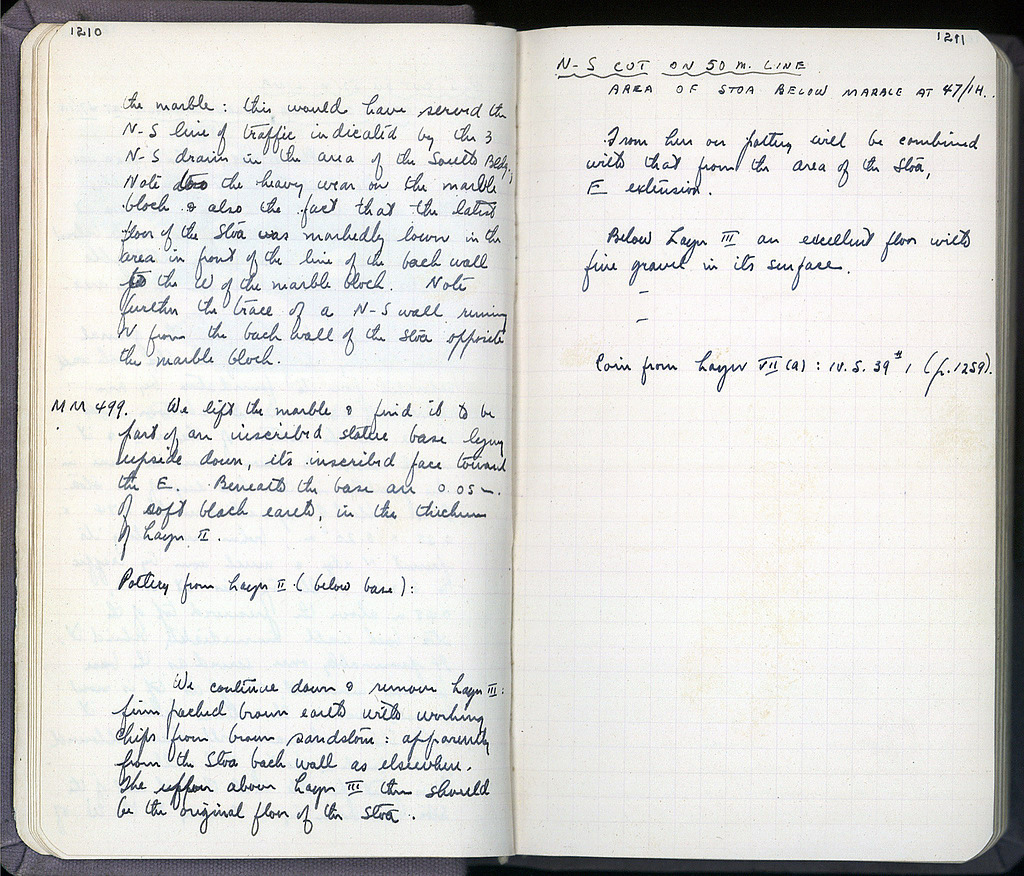 1210
the marble : this would have served the
N-S line of traffic indicated by the 3
N-S drains in the area of the South Bldg.,
Note the heavy wear on the marble
block & also the fact that the latest
floor of the Stoa was markedly lower in the
area in front of the line of the back wall
to the W of the marble block. Note
further the trace of a N-S wall running
N from the back wall of the Stoa opposite
the marble block.
MM 499. We lift the marble & find it to be
part of an inscribed statue base lying
upside down, its inscribed face toward
the E. Beneath the base an 0.05 m.
of soft black earth, in the thickness
of Layer II.
Pottery from Layer II (below base) :
We continue down & remove Layer III :
firm packed brown earth with working
chips from brown sandstone : apparently
from the Stoa back wall as elsewhere.
The above Layer III then should
be the original floor of the Stoa.
1211
N-S CUT ON 50 M. LINE
AREA OF STOA BELOW MARBLE AT 47/ΙΗ..
From here on pottery will be combined
with that from the area of the Stoa,
E extension.
Below Layer III an excellent floor with
fine gravel in its surface.
–
–
Coin from Layer VII (a) : IV. 5. 39 # 1 (p. 1259).